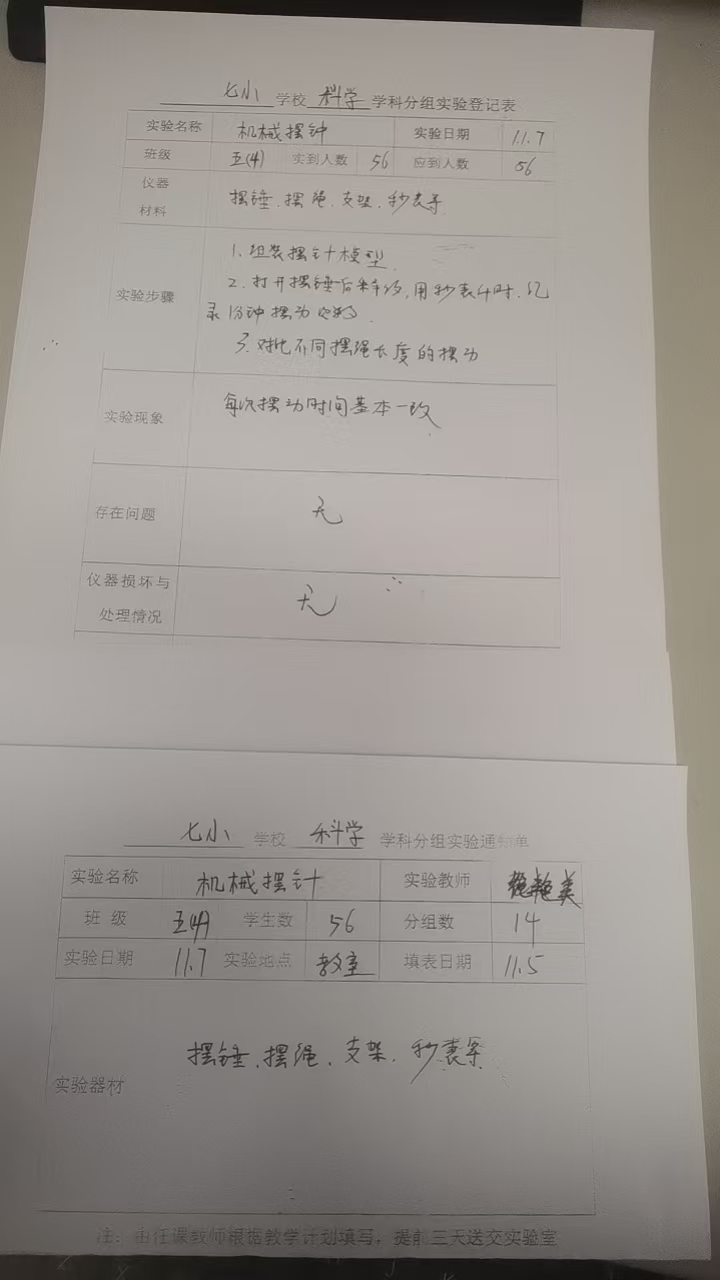 七小 学校 科学 学科分组实验登记表
实验名称 机械摆钟 实验日期 11.7
班级 五(4) 实到人数 56 应到人数 56
仪器
材料
摆锤、摆绳、支架、秒表等
实验步骤
1、组装摆针模型
2、打开摆锤后 用秒表计时、记
录1分钟摆动次数
3、对比不同摆绳长度的摆动
实验现象 每次摆动时间基本一致
存在问题 无
仪器损坏与
处理情况
无
七小 学校 科学 学科分组实验通知单
实验名称 机械摆针 实验教师 美
班 级 五(4) 学生数 56 分组数 14
实验日期 11.7 实验地点 教室 填表日期 11.5
实验器材 摆锤、摆绳、支架、秒表等
注：由任课教师根据教学计划填写，提前三天送交实验室